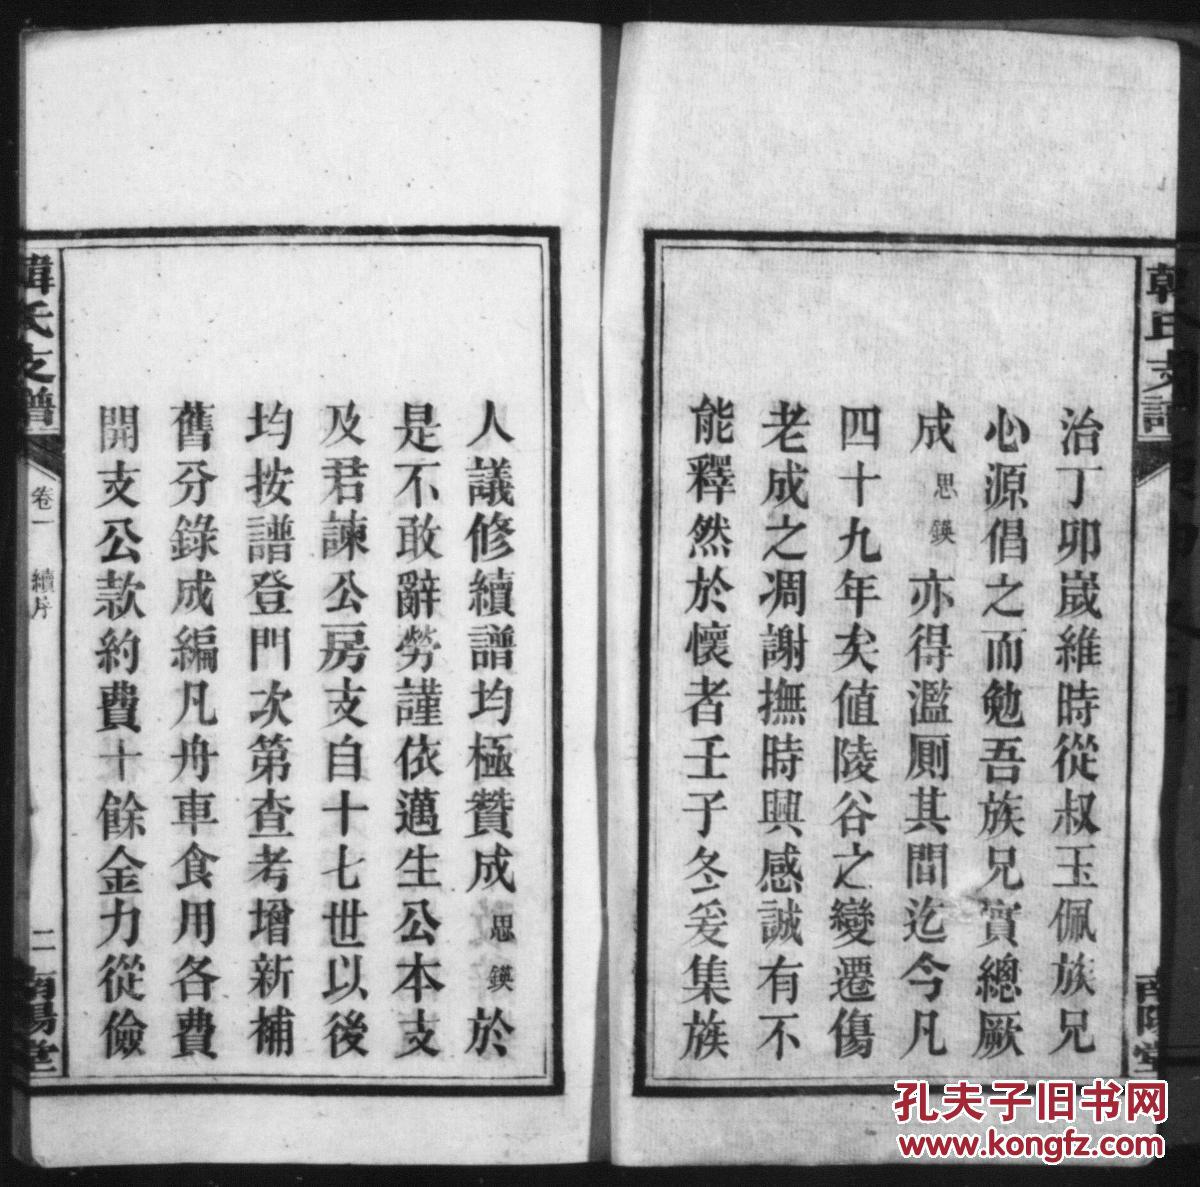 治丁卯嵗維時從叔玉佩族兄
心源倡之而勉吾族兄實總厥
成思鍈亦得濫厠其間迄今凡
四十九年矣值陵谷之變遷傷
老成之凋謝撫時興感誠有不
能釋然於懷者壬子冬爰集族
人議修續譜均極贊成思鍈於
是不敢辭勞謹依邁生公本支
及君諫公房支自十七世以後
均按譜登門次第查考增新補
舊分錄成編凡舟車食用各費
開支公款約費十餘金力從儉
韓氏支譜
卷一 續序
二
南陽堂
韓氏支譜
南陽堂
孔夫子旧书网
www.kongfz.com